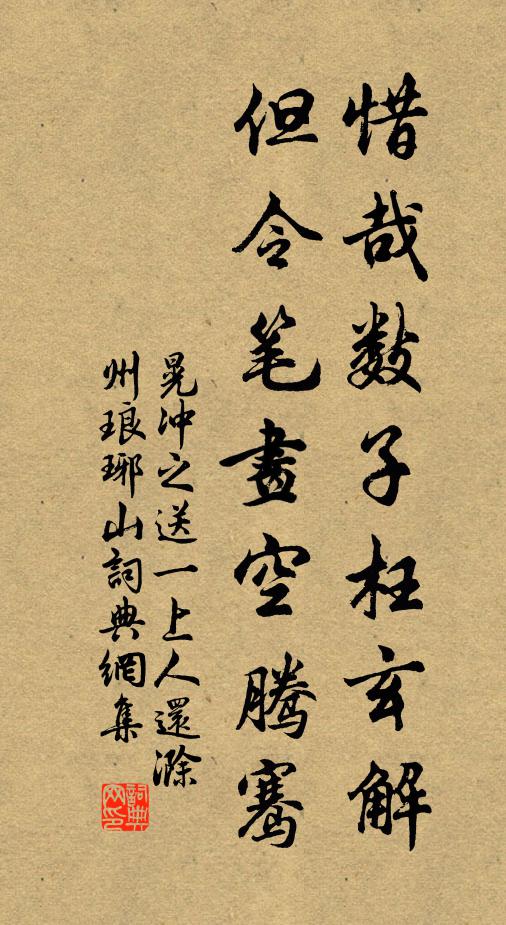 惜哉数子枉玄解
但令笔畫空騰骞
晁冲之送一上人還滁
州琅琊山詞典網集
詞典网印